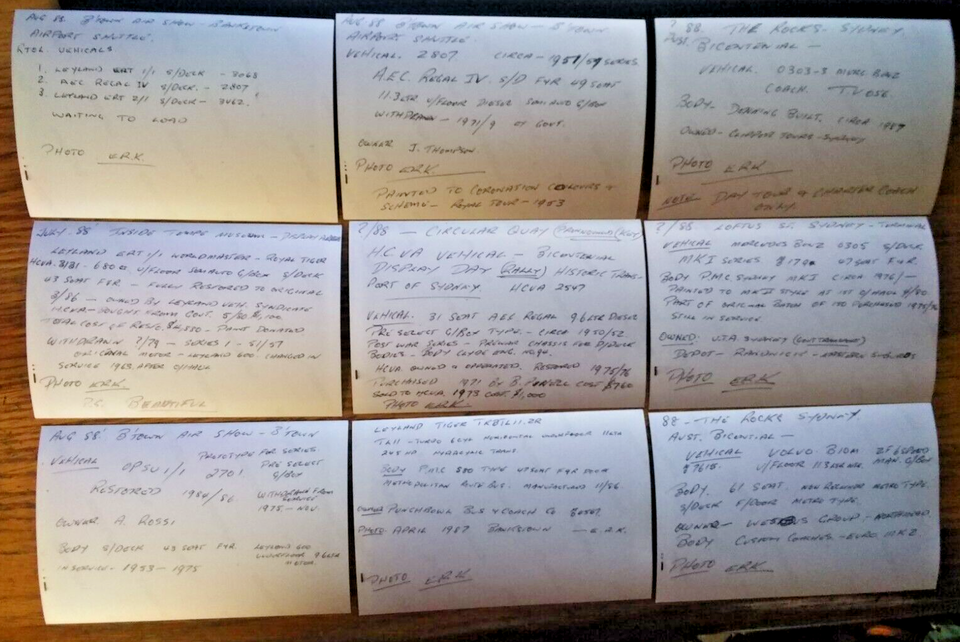 AUG 88 B'TOWN AIR SHOW - BANKSTOWN
AIRPORT SHUTTLE.
RTOL. VEHICALS
1. LEYLAND ERT 1/1 S/DECK - 3063
2. A.E.C. REGAL IV S/DECK. - 2807
3. LEYLAND ERT 2/1 S/DECK - 3462.
WAITING TO LOAD
PHOTO E.R.K.
AUG 88 B'TOWN AIR SHOW - B'TOWN
AIRPORT SHUTTLE.
VEHICAL. 2807 CIRCA - 1957/59 SERIES
A.E.C. REGAL IV. S/D FYR 49 SEAT
11.3 LTR U/FLOOR DIESEL SEMI AUTO G/BOX
WITHDRAWN - 1971/9 BY GOVT.
OWNER J. THOMPSON.
PHOTO E.R.K.
PAINTED TO CORONATION COLOURS &
SCHEME - ROYAL TOUR - 1953
? 88. THE ROCKS - SYDNEY
AUST. BICENTENIAL -
VEHICAL. 0303-3 MERC BENZ
COACH. TV 056.
BODY - DENNING BUILT. CIRCA 1987
OWNED - CLIPPER TOURS - SYDNEY
PHOTO ERK
NOTE DAY TOUR & CHARTER COACH
ONLY.
JULY. 88' INSIDE TEMPE MUSEUM -
LEYLAND ERT 1/1 WORLDMASTER - ROYAL TIGER
HCVA. U/FLOOR SEMI AUTO G/BOX S/DECK
43 SEAT FYR - FULLY RESTORED TO ORIGINAL
2/86 - OWNED BY LEYLAND VEH. SYNDICATE
H.C.V.A - BOUGHT FROM GOVT.
TOTAL COST OF RESTO. - PAINT DONATED
WITHDRAWN ?/79 - SERIES 1 - 51/57
ORIGINAL MOTOR - LEYLAND 600. CHANGED IN
SERVICE 1963 AFTER O/HAUL
PHOTO E.R.K.
P.S. BEAUTIFUL
?/88 - CIRCULAR QUAY
H.C.V.A VEHICAL - BICENTENIAL
DISPLAY DAY (RALLY) HISTORIC TRANS-
PORT OF SYDNEY. HCVA 2547
VEHICAL. 31 SEAT AEC REGAL 9.6 LTR DIESEL
PRE SELECT G/BOX TYPE. - CIRCA 1950/52
POST WAR SERIES - PREWAR CHASSIS FOR D/DECK
BODIES - BODY CLYDE ENG.
HCVA OWNED & OPERATED. RESTORED 1975/76
PURCHASED 1971 BY B. POWELL COST $760
SOLD TO HCVA. 1973 COST. $1,000
PHOTO ERK.
?/88 LOFTUS ST. SYDNEY - TERMINAL
VEHICAL MERCEDES BENZ 0305 S/DECK
MK I SERIES # 1790 47 SEAT FYR.
BODY P.M.C. SYDNEY MK I CIRCA 1976/-
PAINTED TO MK II STYLE AT 1ST O/HAUL
PART OF ORIGINAL BATCH OF PURCHASED
STILL IN SERVICE.
OWNED. U.T.A. SYDNEY (GOVERNMENT)
DEPOT - RANDWICK - EASTERN SUBURBS
PHOTO ERK
AUG 88' B'TOWN AIR SHOW - B'TOWN
VEHICAL OPSU 1/1 PROTOTYPE FOR SERIES
2701 PRE SELECT
G/BOX
RESTORED 1984/86 WITHDRAWN FROM
SERVICE
1975 - NOV
OWNER A. ROSSI
BODY S/DECK 43 SEAT FYR. LEYLAND 600
9.6 LTR
IN SERVICE - 1953 - 1975 MOTOR.
LEYLAND TIGER TRBTL11.2R
TL11 - TURBO 601H HORIZONTAL
245 HP. HYDROLIC TRANS.
BODY PMC 800 TYPE FYR
METROPOLITAN ROUTE BUS. MANUFACTURED 11/86.
OWNER PUNCHBOWL BUS & COACH CO
PHOTO APRIL 1987 BANKSTOWN - E.R.K.
PHOTO E.R.K
88 - THE ROCKS SYDNEY
AUST. BICENTIAL -
VEHICAL VOLVO. B10M ZF 6 SPEED
# 7615. U/FLOOR MAN. G/BOX
BODY. 61 SEAT. NON REGULAR METRO TYPE.
S/DECK F/DOOR METRO TYPE.
OWNER - WESTBUS GROUP -
BODY CUSTOM COACHES - EURO MK 2
PHOTO ERK.